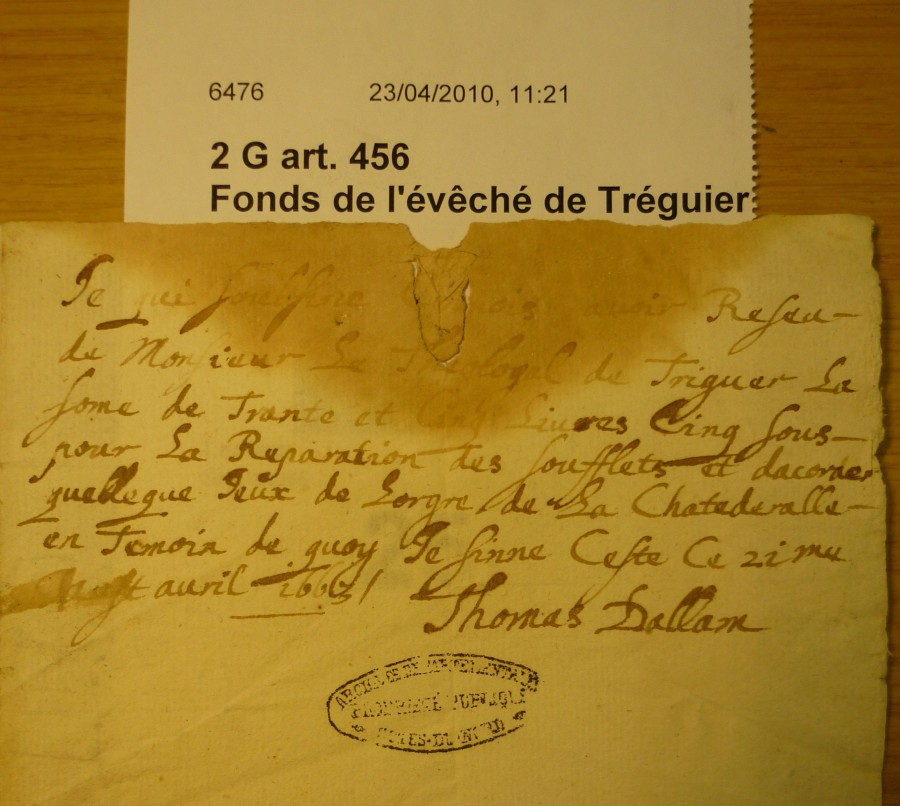 6476 23/04/2010, 11:21
2 G art. 456
Fonds de l'évêché de Tréguier
Je qui soubsine avoir Reseu
de Monsieur Le Theologal de Triguer La
some de Trante et Cinq Livres Cinq sous
pour La Reparation des soufflets et dacorder
quelleque Jeux de Lorgre de La Chatederalle
en Temoin de quoy Je sinne Ceste Ce 21 me
avril
Thomas Dallam
ARCHIVES DÉPARTEMENTALES
PROPRIÉTÉ PUBLIQUE
CÔTES-DU-NORD